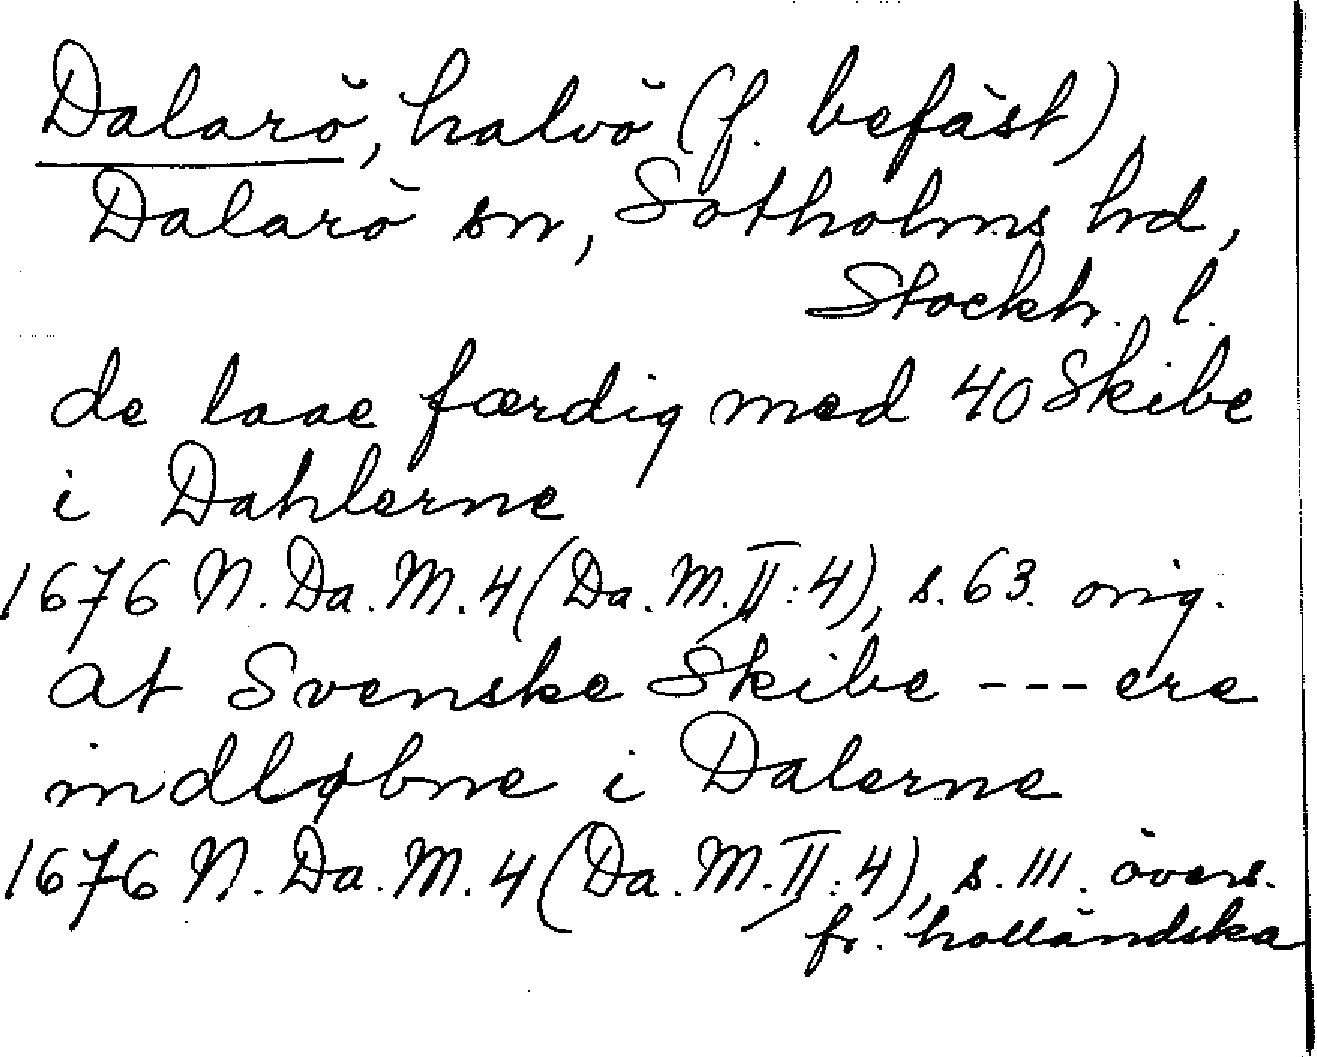 Dalarö, halvö (f. befäst),
Dalarö sn, Sotholms hd,
Stockh. l.
de laae færdig med 40 Skibe
i Dahlerne
1676 N. Da. M. 4 (Da. M. II: 4), s. 63. orig.
at Svenske Skibe --- ere
indløbne i Dalerne
1676 N. Da. M. 4 (Da. M. II: 4), s. 111. övers.
fr. holländska